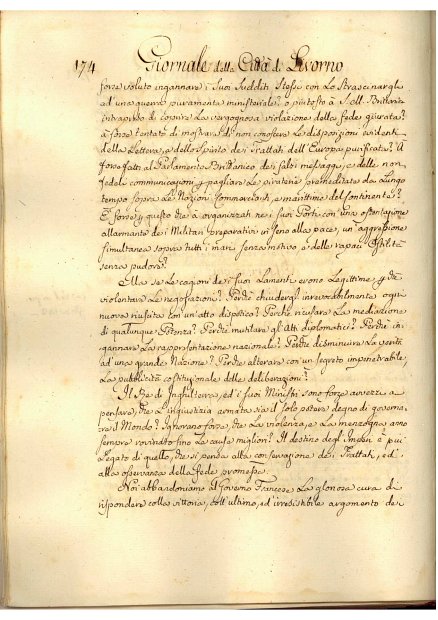 174 Giornale della Città di Livorno
forse voluto ingannare i suoi Sudditi Stessi con Lo Strascinargli
ad' una guerra puramente ministeriale? o piutosto à S. M. Britanica
intrapreso di coprire La vergognosa violazione della fede giurata?
à forse tentato di mostrarsi di non conoscere Le disposizioni evidenti
della Lettera, e dello Spirito dei Trattati dell'Europa purificata? A
forse fatti al Parlamento Britanico dei falsi messaggi, e delle non
fedeli communicazioni p. pagliare Le piraterie premeditate da Lungo
tempo sopra Le Nazioni Commercianti, e marittime del Continente?
E forse p. questo che à organizzati nei suoi Porti con una ostentazione
allarmante dei Militari Preparativi in seno alla pace, un' aggressione
simultanea sopra tutti i mari senza motivo e delle rapaci Ostilità
senza pudore?
Ma se Le cagioni dei suoi Lamenti erono Legittime p. chè
violentare Le negoziazioni? Perchè chiudersi irrevocabilmente ogni
nuova riuscita con un' atto dispotico? Perchè ricusare La mediazione
di qualunque Potenza? Perchè mutilare gl' Atti diplomatici? Perchè in-
gannare La rappresentazione nazionale? Perchè diminuire La verità
ad una grande Nazione? Perchè alterare con un segreto impenetrabile
La pubblicità costituzionale delle deliberazioni?
Il Re di Inghilterra ed i suoi Ministri sono forse avvezzi a
pensare, che L'ingiustizia armata sia il solo potere degno di governa-
re il Mondo? Ignorano forse, che La violenza, e La menzogna anno
sempre rovinato fino Le cause migliori? Il destino degl' Imperi è più
Legato di quello, che si pensa alla conservazione dei Trattati, ed
alla osservanza della fede promessa.
Noi abbandoniamo al Governo Francese La gloriosa cura di
rispondere colla vittoria, coll' ultimo, ed irresistibile argomento dei